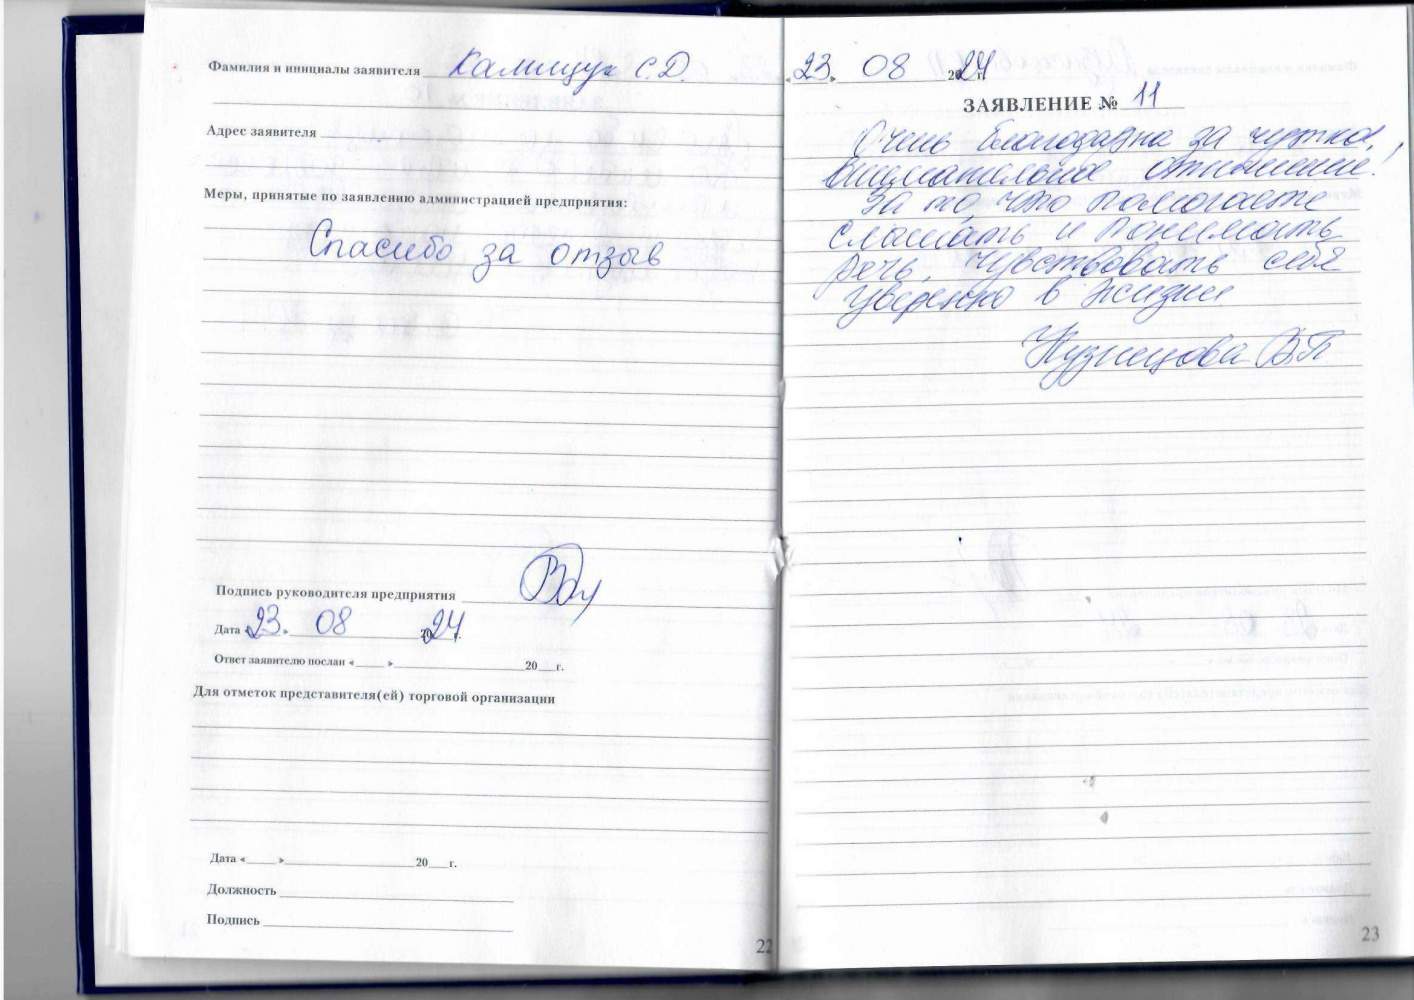 Фамилия и инициалы заявителя Калищук С.Д.
Адрес заявителя
Меры, принятые по заявлению администрацией предприятия:
Спасибо за отзыв
Подпись руководителя предприятия
Дата «23» 08 2024 г.
Ответ заявителю послан « » 20 г.
Для отметок представителя(ей) торговой организации
Дата « » 20 г.
Должность
Подпись
22
«23» 08 2024 г.
ЗАЯВЛЕНИЕ № 11
Очень благодарна за чуткое,
внимательное отношение!
За то, что помогаете
слышать и понимать
речь, чувствовать себя
уверенно в жизни
Кузнецова В.П
23